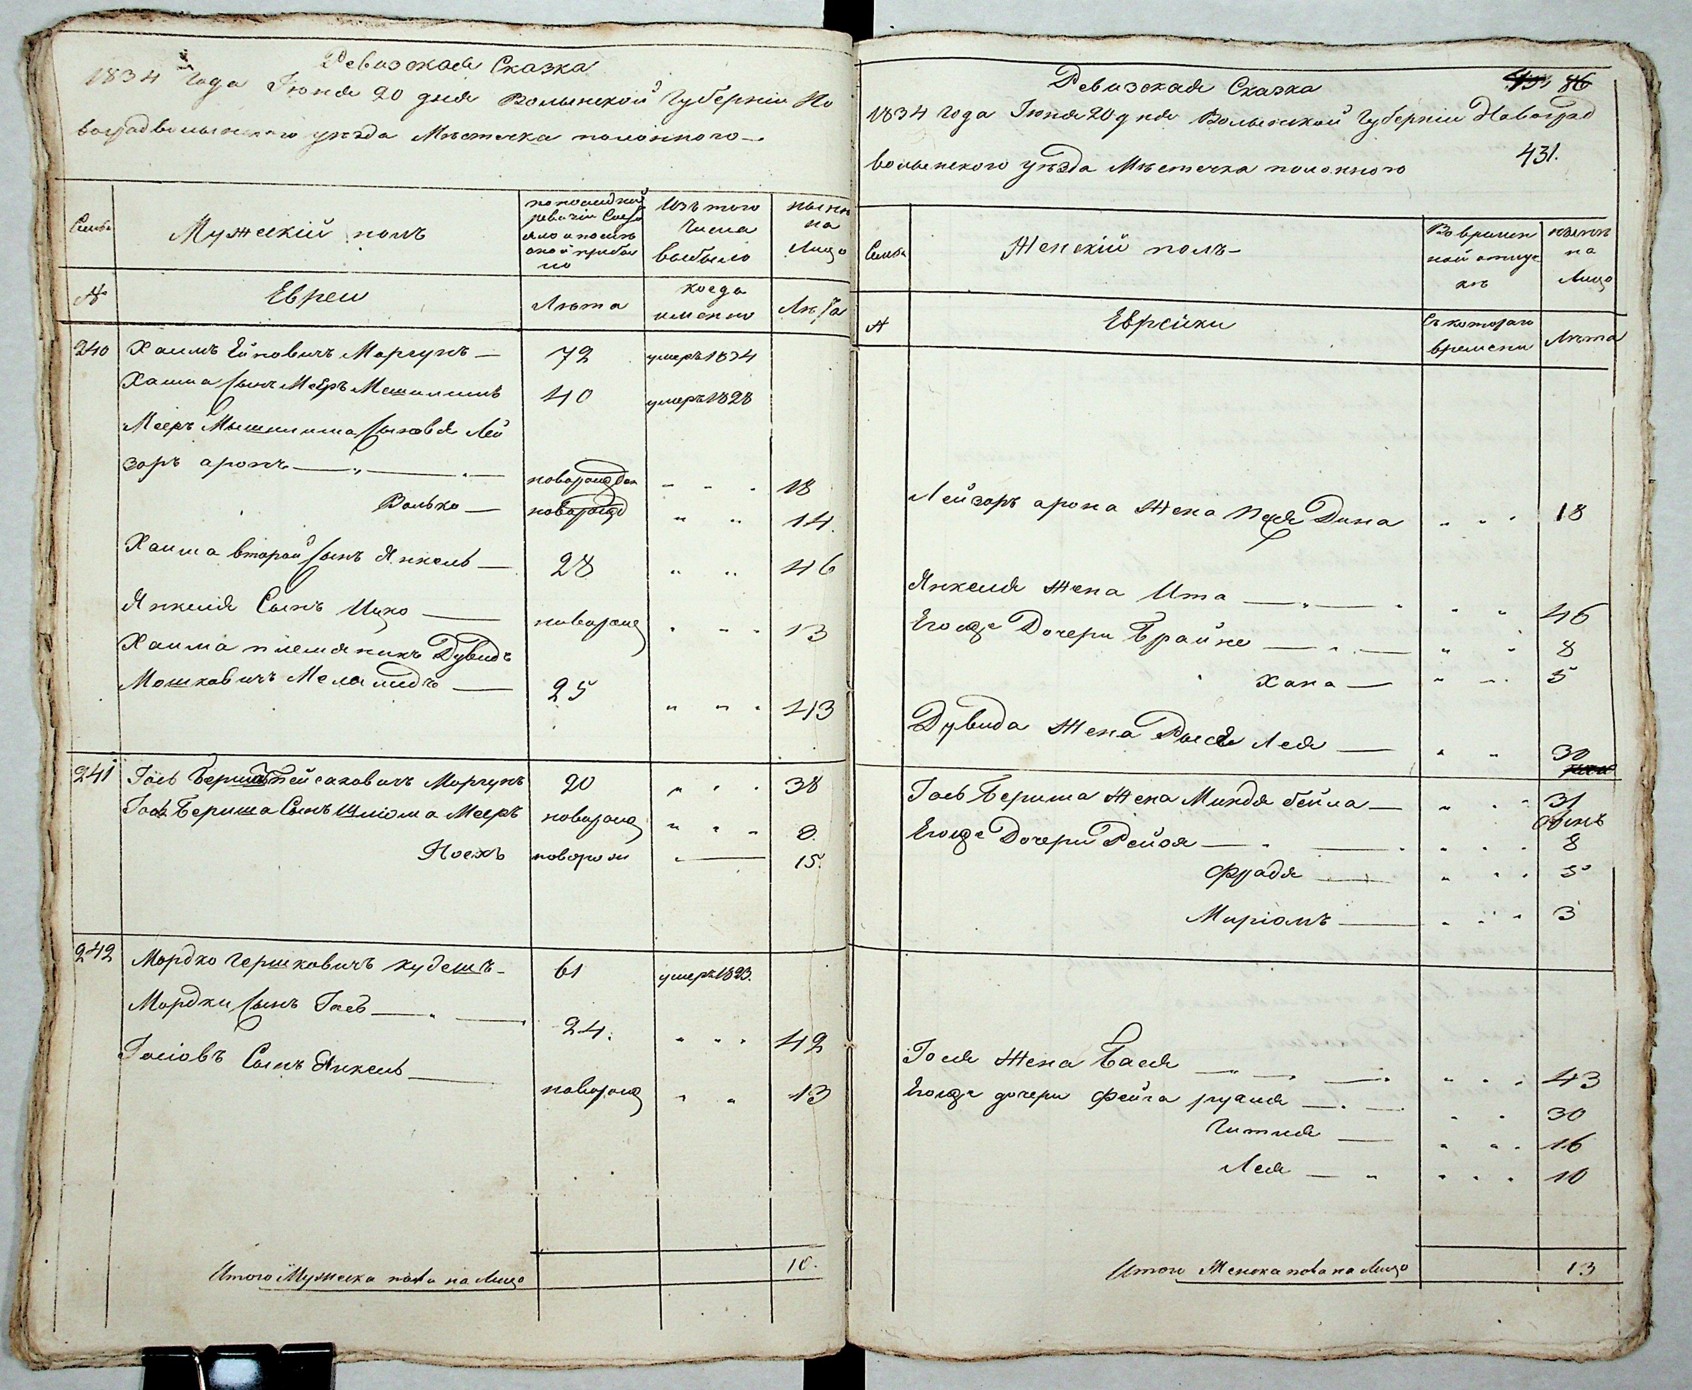 Ревизская Сказка
1834 Года Июня 20 дня Волынской Губернии Но
воградволынского уѣзда Мѣстечка полонного
Семьи
Мужескій полъ
по последней ревизіи Состояло и послѣ оной прибыло
Изъ того Числа выбыло
нынѣ на Лицо
№
Евреи
Лѣта
когда именно
Лѣта
240 Хаимъ Моргунъ 72 умеръ 1824
Хаима Сынъ Мееръ Мешилимъ 40 умеръ 1828
Меера Мешилима Сыновя Лей
зоръ аронъ новорожден 18
Волько новорожд 14
Хаима второй Сынъ Янкель 28 46
Янкеля Сынъ Ицко новорожд 13
Хаима племяникъ Дувидъ
Мошковичъ Меламидъ 25 43
241 Іось Беришъ Пейсаховичъ Моргунъ 20 38
Іося Бериша Сынъ Шліома Мееръ новорожд 8
Ноехъ новорож 15
242 Мордко Гершковичъ Кудешъ 61 умеръ 1823.
Мордки Сынъ Іось 24. 42
Іосіовъ Сынъ Янкель новорожд 13
Итого Мужеска пола на Лицо 10.
Ревизская Сказка 86
1834 Года Июня 20 дня Волынской Губерніи Новоград
431.
волынского уѣзда Мѣстечка полонного
Семьи
Женскій полъ
Во временной отлучкѣ
нынѣ на Лицо
№
Еврейки
Съ котораго времени
Лѣта
Лейзоръ арона Жена Песя Дина 18
Янкеля Жена Ита 46
Егожъ Дочери Брайне 8
Хана 5
Дувида Жена Рыся Лея 30
Іось Бериша Жена Миндя бейла 31
Егожъ Дочери Рейзя 8
Фрадя 5
Миріамъ 3
Іося Жена Бася 43
Егожъ дочери Фейга рухля 30
Гитля 16
Лея 10
Итого Женска пола на Лицо 13